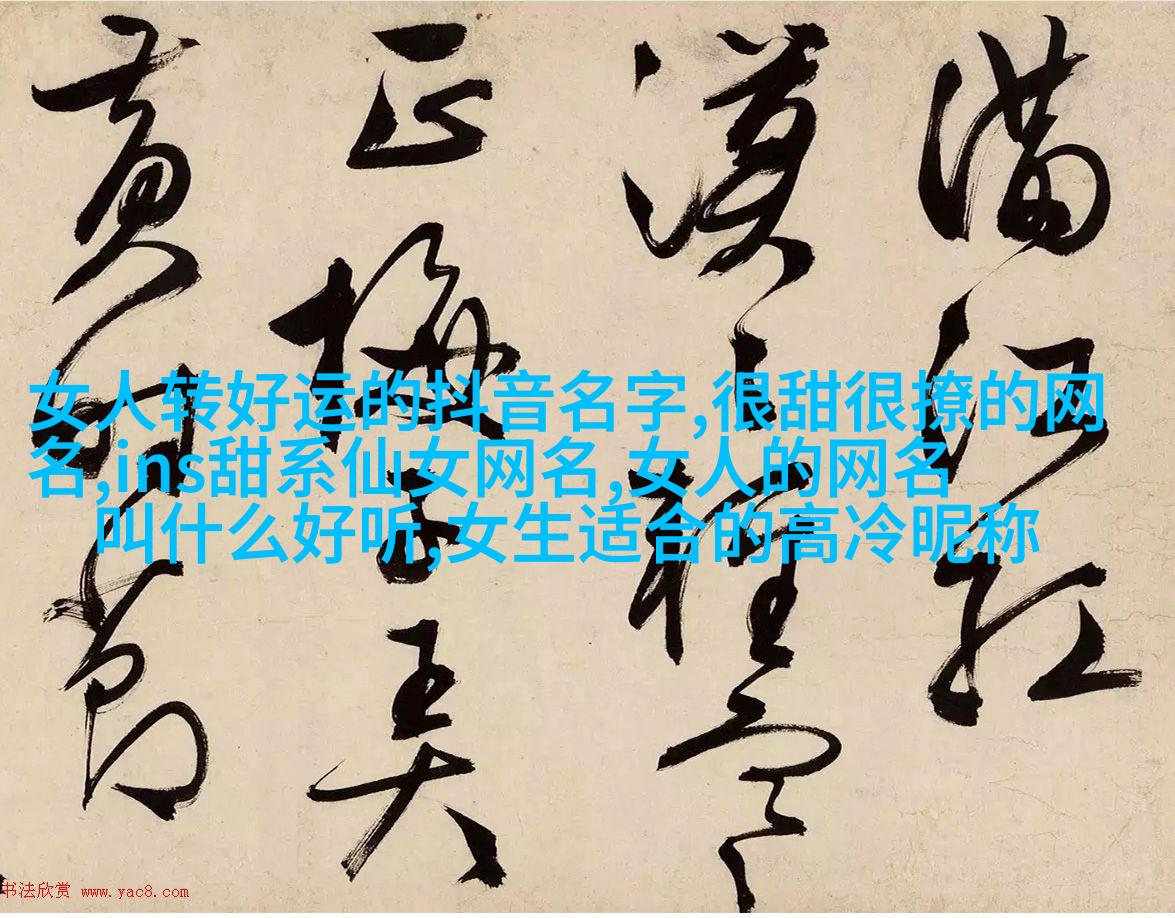 滿江紅
漠〻輕陰
正梅子弄
黃時節
女人转好运的抖音名字,很甜很撩的网
名,ins甜系仙女网名,女人的网名
叫什么好听,女生适合的高冷昵称
书法欣赏 www.yac8.com